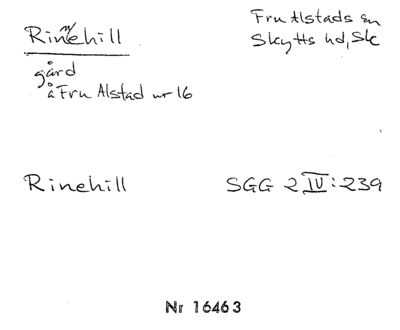 Rinnehill
Fru Alstads sn
Skytts hd, Sk
gård
å Fru Alstad nr 16
Rinehill
SGG 2 IV:239
Nr 16463